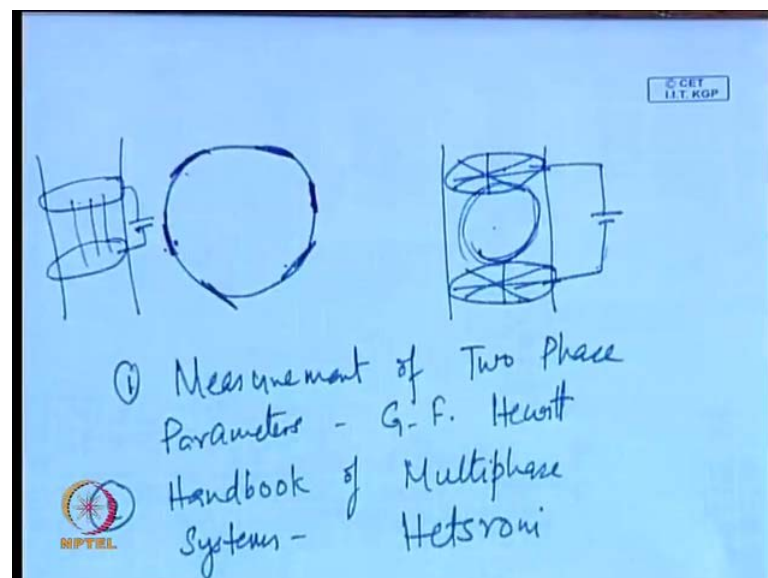 © CET
I.I.T. KGP
① Measurement of Two Phase
Parameters - G.F. Hewitt
② Handbook of Multiphase
Systems - Hetsroni
NPTEL